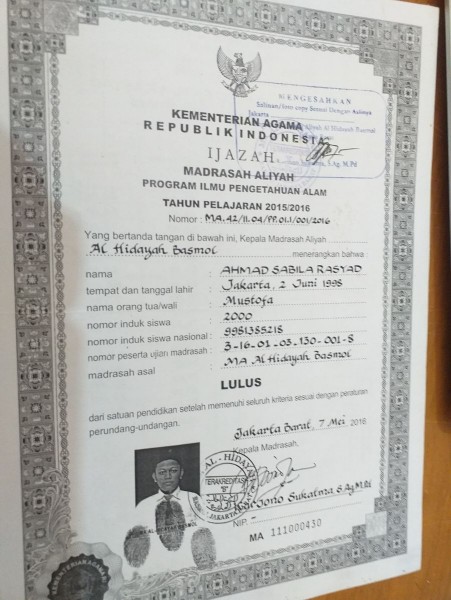 MENGESAHKAN
Salinan/foto copy Sesuai Dengan Aslinya
Jakarta
KEMENTERIAN AGAMA
REPUBLIK INDONESIA
IJAZAH
MADRASAH ALIYAH
PROGRAM ILMU PENGETAHUAN ALAM
TAHUN PELAJARAN 2015/2016
Nomor : MA.42/11.04/PP.01.1/001/2016
Yang bertanda tangan di bawah ini, Kepala Madrasah Aliyah
Al Hidayah Basmol menerangkan bahwa
nama : AHMAD SABILA RASYAD
tempat dan tanggal lahir : Jakarta, 2 Juni 1998
nama orang tua/wali : Mustofa
nomor induk siswa : 2000
nomor induk siswa nasional : 9981385218
nomor peserta ujian madrasah : 3-16-01-03-130-001-8
madrasah asal : MA Al Hidayah Basmol
LULUS
dari satuan pendidikan setelah memenuhi seluruh kriteria sesuai dengan peraturan
perundang-undangan.
Jakarta Barat, 7 Mei 2016
Kepala Madrasah,
TERAKREDITASI
NIP. -
MA 111000430